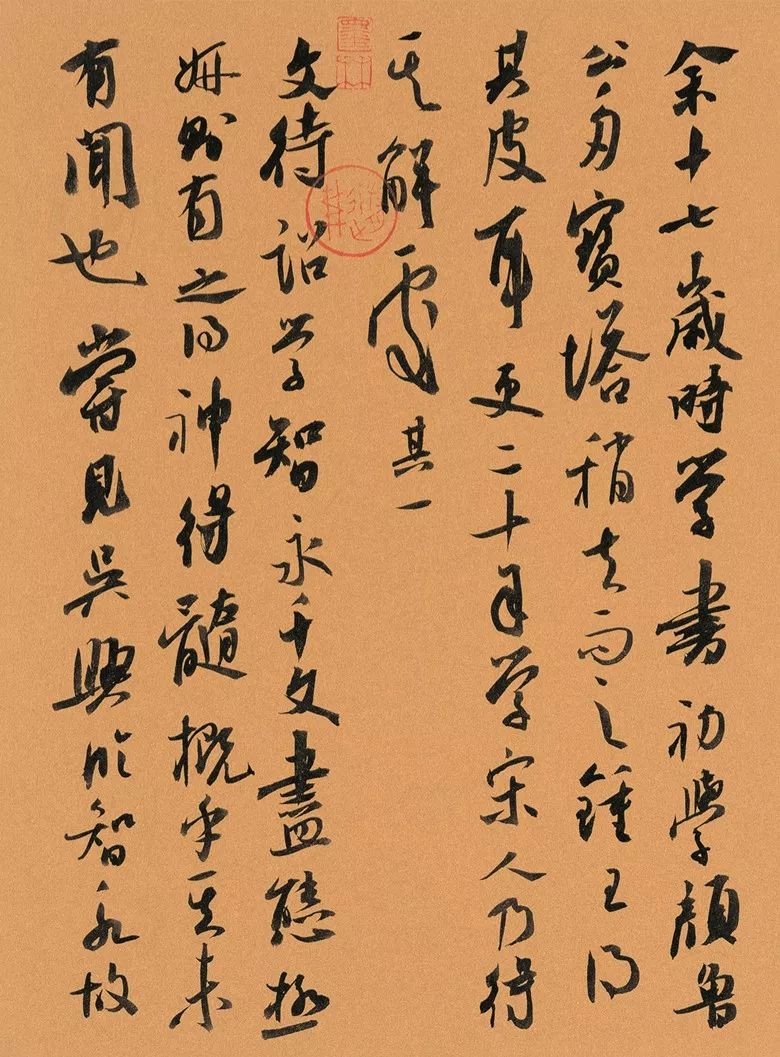 余十七歲時學書初學顏魯
公多寶塔稍去而之鍾王得
其皮耳更二十年學宋人乃得
其解處其一
文待詔學智永千文盡態極
妍則有之得神得髓概乎其未
有聞也嘗見吳興臨智永故